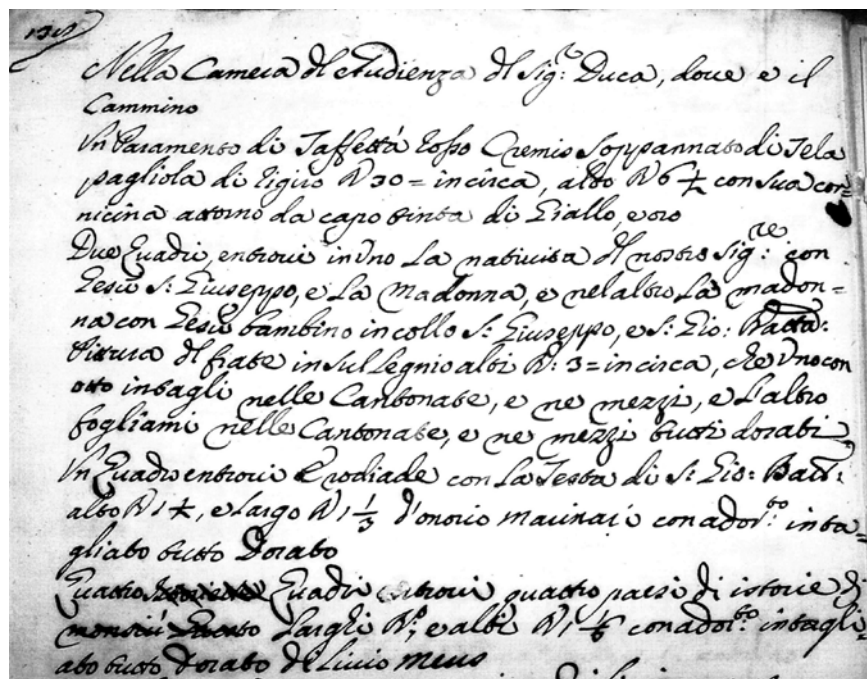 Nella Camera di Audienza del Sig:re Duca, dove e il
Cammino
Un Paramento di Taffettà Rosso Cremis Soppannato di Tela
pagliola di giro B 30 = incirca, alto B 6 1/4 con sua cor=
nicina attorno da capo tinta di Giallo, e oro
Due Quadri, entrovi in Uno La natività del nostro Sig:re con
Gesù S: Giuseppo, e La Madonna, e nel altro La madon=
na con Gesù bambino in collo S: Giuseppo, e S: Gio: Batta:
Pittura del frate in sul Legnio alti B: 3 = incirca, che Uno con
otto intagli nelle Cantonate, e ne mezzi, e L'altro
fogliami nelle Cantonate, e ne mezzi tutti dorati
Un Quadro entrovi Erodiade con La Testa di S: Gio: Batt:
alto B 1 1/4, e Largo B 1 1/3 d'onorio marinari con ador:to inta=
gliato tutto Dorato
Quattro Quadri entrovi quattro paesi di istorie di
monsiù Larghi B:, e alti B 1 1/6 con ador:to intagli=
ato tutto Dorato di Livio Meus